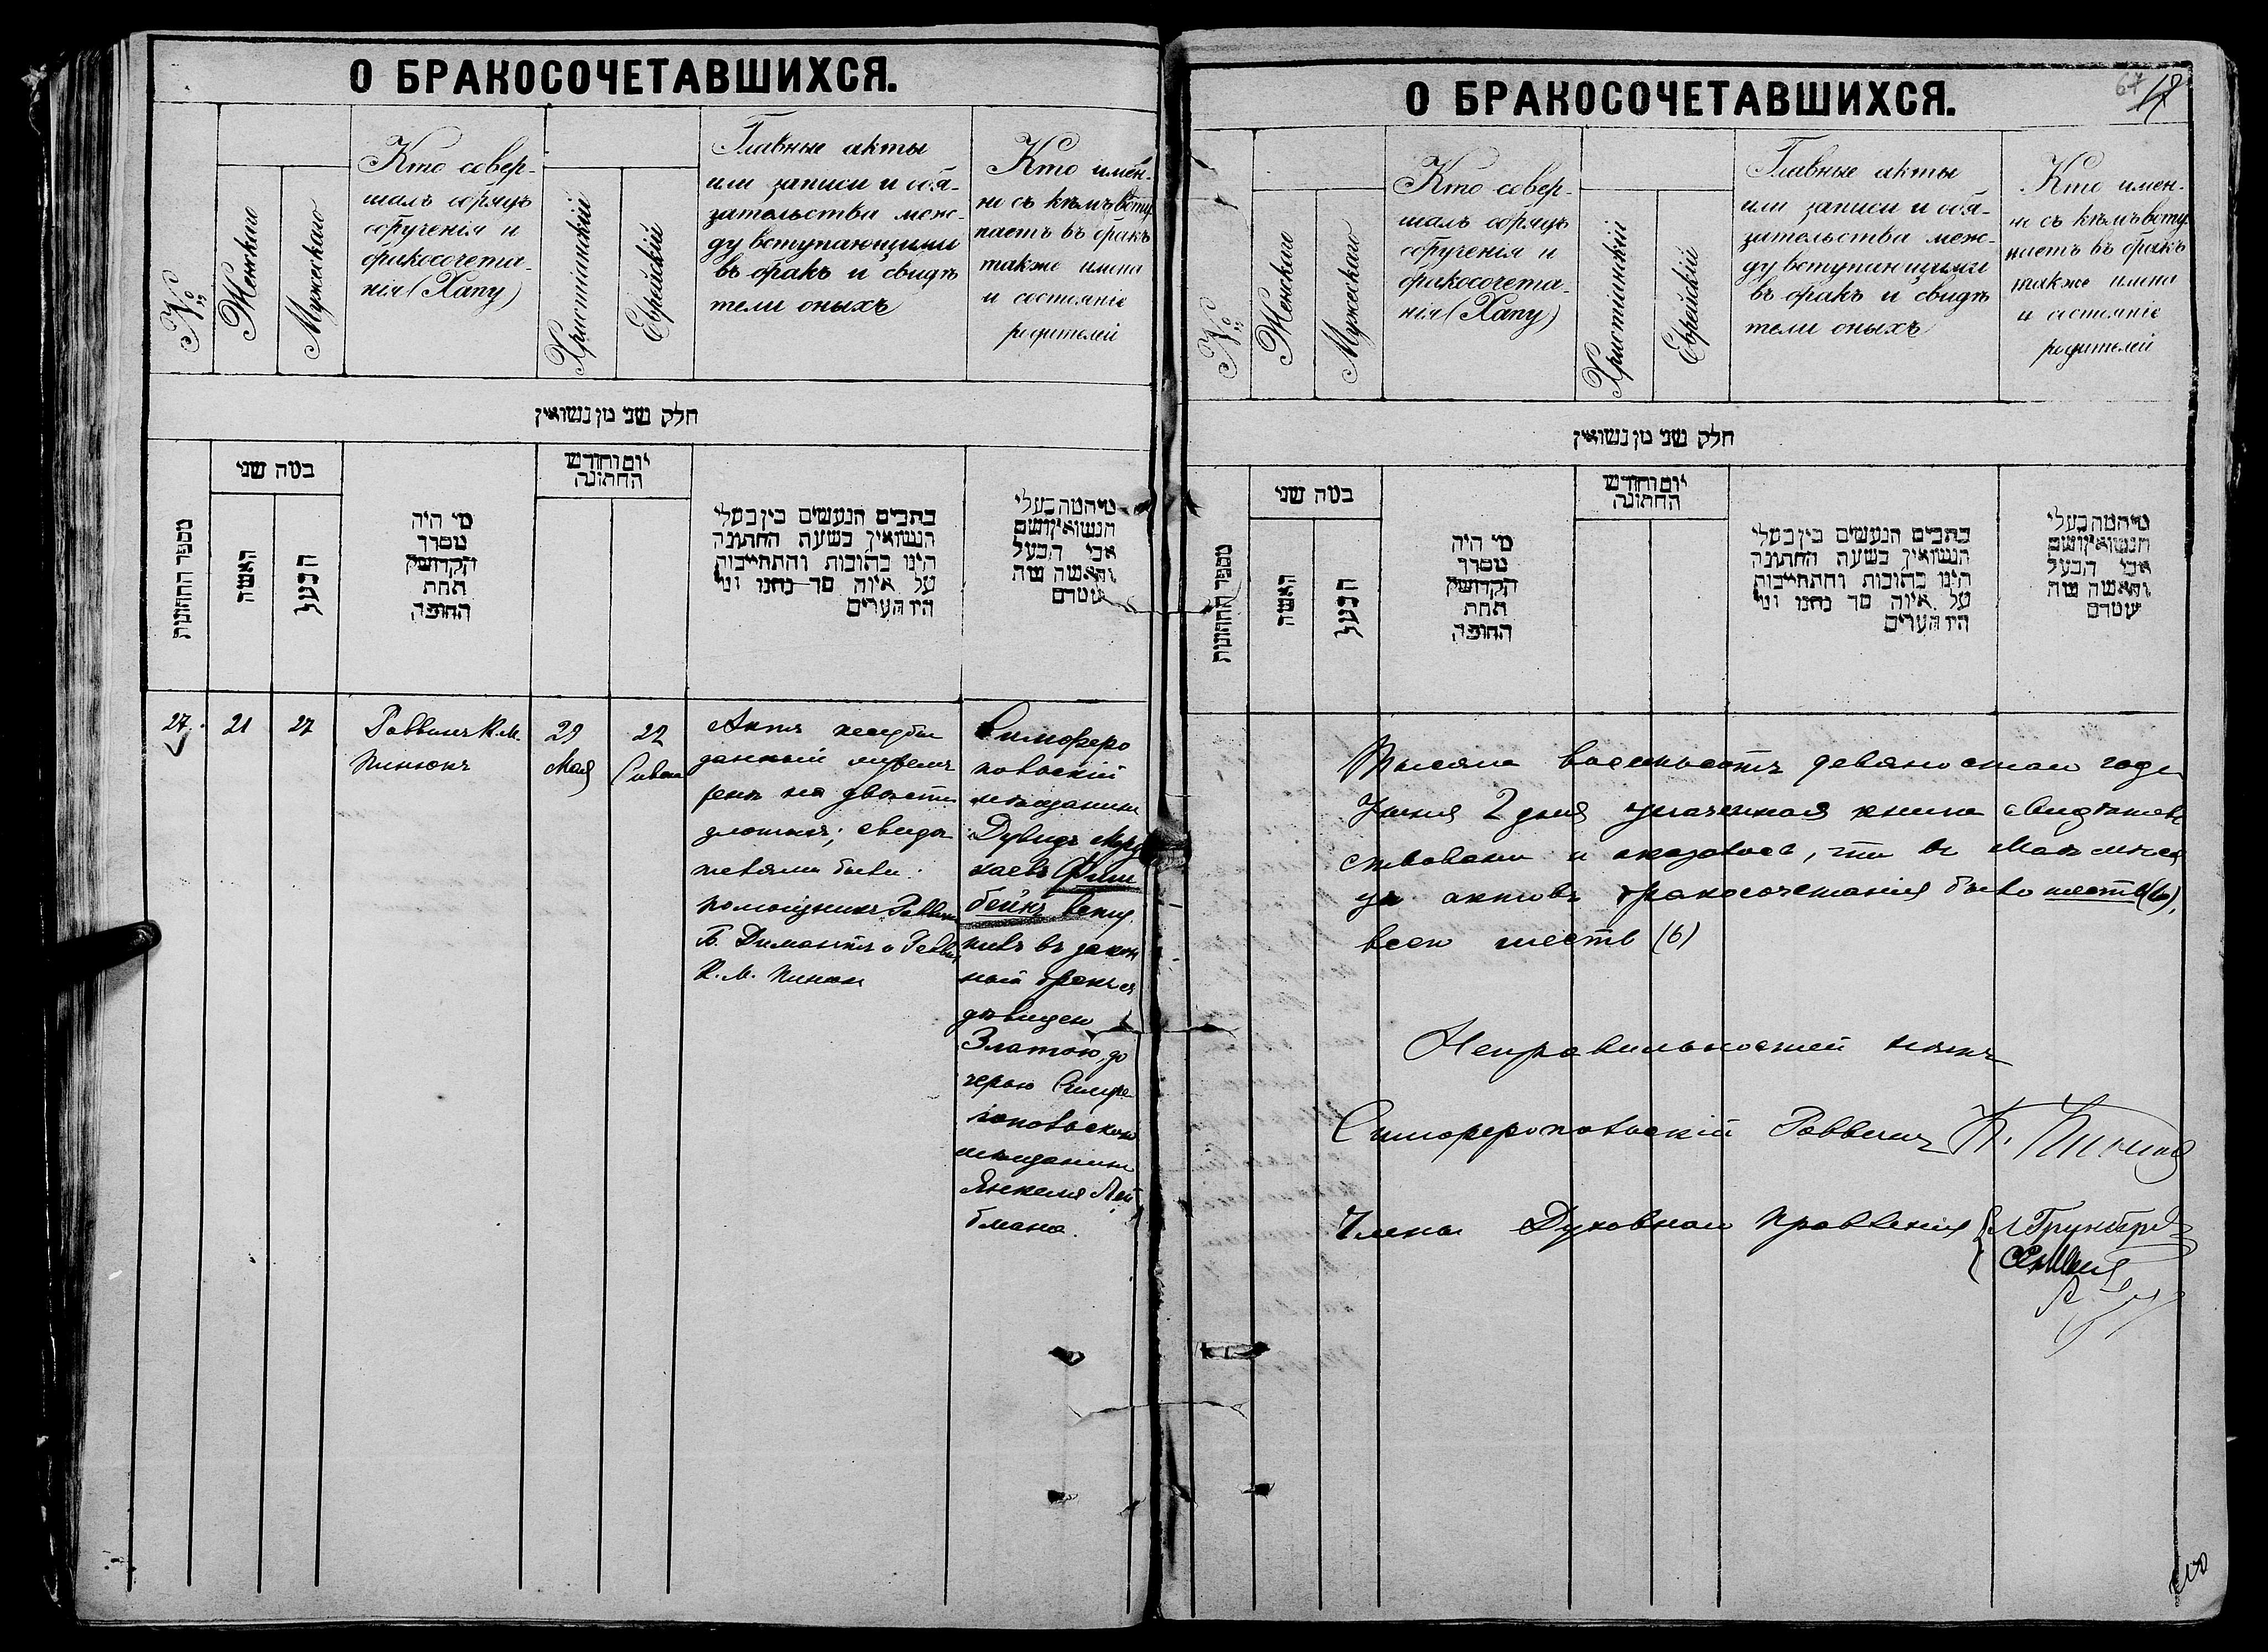 О БРАКОСОЧЕТАВШИХСЯ.
№
Женскаго
Мужескаго
Кто совер-
шалъ обрядъ
обрученія и
бракосочета-
нія (Хапу)
Христіанскій
Еврейскій
Главные акты
или записи и обя-
зательства меж-
ду вступающими
въ бракъ и свидѣ
тели оныхъ
Кто имен-
но съ кѣмъ всту
паетъ въ бракъ
также имена
и состояніе
родителей
חלק שני מן נשואין
מספר החתונות
במה שני
האשה
הבעל
מי היה
מסדר
הקדושין
תחת
החופה
יום וחודש
החתונה
כתבים הנעשים בין בעלי
הנשואין בשעת החתונה
היינו כתובות והתחייבות
על איזה סך נתנו ומי
היו העדים
מי המה בעלי
הנשואין ושם
אבי הבעל
והאשה
27.
21
27
Раввинъ К. М.
Пинюкъ
29
Мая
22
Сивана
Актъ кесубы
данный
на двѣсти
злотыхъ; свидѣ
телями были:
помощникъ Раввина
Б. Димантъ и Раввинъ
К. М. Пинюкъ
Симферо
польскій
мѣщанинъ
Дувидъ Морд
хаевъ Фиш
бейнъ вступ.
илъ въ закон
ный бракъ съ
дѣвицею
Златою, до
черью Симфе
ропольскаго
мѣщанина
Янкеля Лей
бмана.
О БРАКОСОЧЕТАВШИХСЯ.
67
№
Женскаго
Мужескаго
Кто совер-
шалъ обрядъ
обрученія и
бракосочета-
нія (Хапу)
Христіанскій
Еврейскій
Главные акты
или записи и обя-
зательства меж-
ду вступающими
въ бракъ и свидѣ
тели оныхъ
Кто имен-
но съ кѣмъ всту
паетъ въ бракъ
также имена
и состояніе
родителей
חלק שני מן נשואין
מספר החתונות
במה שני
האשה
הבעל
מי היה
מסדר
הקדושין
תחת
החופה
יום וחודש
החתונה
כתבים הנעשים בין בעלי
הנשואין בשעת החתונה
היינו כתובות והתחייבות
על איזה סך נתנו ומי
היו העדים
מי המה בעלי
הנשואין ושם
אבי הבעל
והאשה
Тысяча восемьсотъ девяностаго года
Іюня 2 дня означенная книга свидѣтель
ствована и оказалось, что въ Маѣ мѣся
цѣ актовъ бракосочетанія было шесть (6),
всего шесть (6)
Неправильностей нѣтъ
Симферопольскій Раввинъ К. Пинюкъ
Члены Духовнаго Правленія Л Грунберг